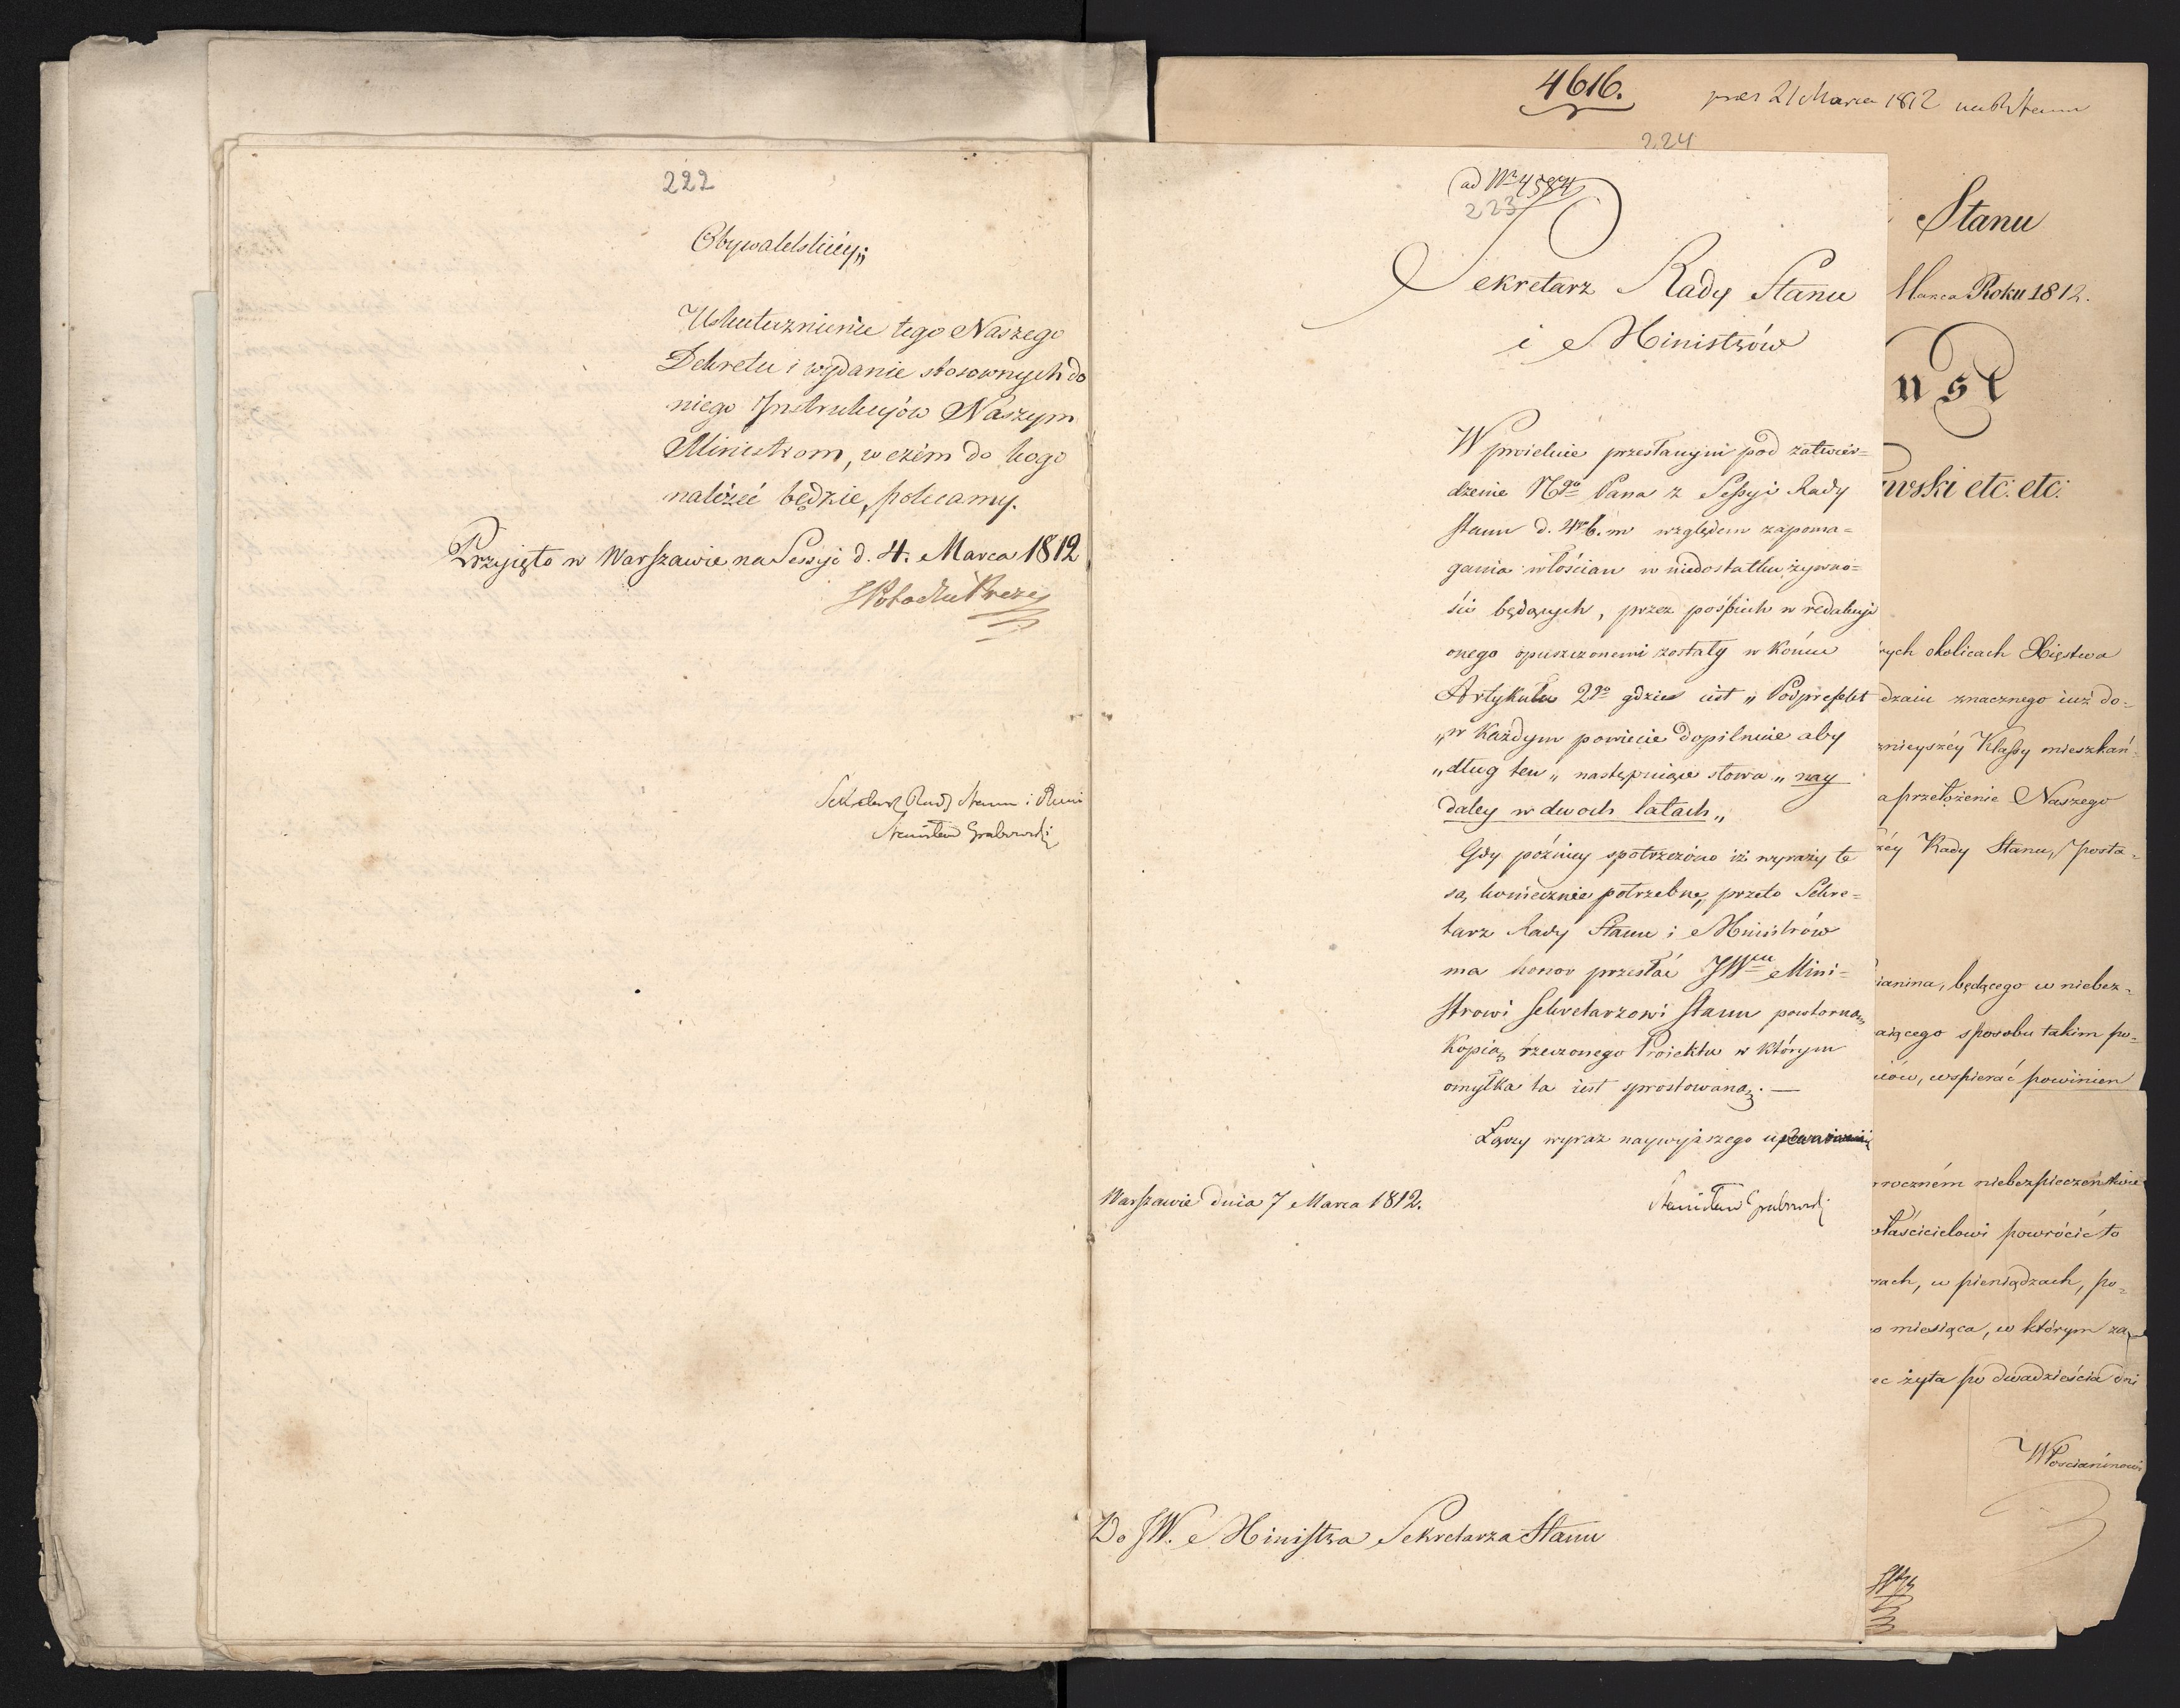 222
Obywatelskiéy„
Uskutecznienie tego Naszego
Dekretu i wydanie stosownych do
niego Instrukcyów Naszym
Ministrom, w czém do kogo
należéć będzie, polecamy.
Przyięto w Warszawie na Sessyi d. 4. Marca 1812
Sekretarz Rady Stanu i
Stanisław Grabowski
ad Nr 4584
223
Sekretarz Rady Stanu
i Ministrów
W proiekcie przesłanym pod zatwier=
dzenie Ngo Pana z Sessyi Rady
Stanu d. 4go b. m względem zapoma=
gania włościan w niedostatku żywno=
ści będących, przez pośpiech w redakcyi
onego opuszczonemi zostały w końcu
Artykułu 2go gdzie iest „ Podprefekt
„w każdym powiecie dopilnuie aby
„dług ten „ następuiące słowa „ nay
daley w dwoch latach„
Gdy poźniey spotrzeżono iż wyrazy te
są koniecznie potrzebne, przeto Sekre=
tarz Rady Stanu i Ministrów
ma honor przesłać JWmu Mini=
strowi Sekretarzowi Stanu powtorną
kopią rzeczonego Proiektu w którym
omyłka ta iest sprostowaną. —
Łączy wyraz naywyższego
Warszawie dnia 7 Marca 1812.
Stanisław Grabowski
Do JW. Ministra Sekretarza Stanu
4616.
21 Marca 1812
224
Stanu
Marca Roku 1812.
usł
wski etc: etc:
ych okolicach Xięstwa
dzaiu znacznego iuż do=
znieyszéy Klassy mieszkań=
a przełożenie Naszego
zéy Rady Stanu, posta=
ianina, będącego w niebez=
aiącego sposobu takim po=
ców, wspierać powinien
roczném niebezpieczeństwie
właścicielowi powrócić to
rach, w pieniądzach, po=
o miesiąca, w którym za
ec żyta po dwadzieścia dni
Włościaninowi